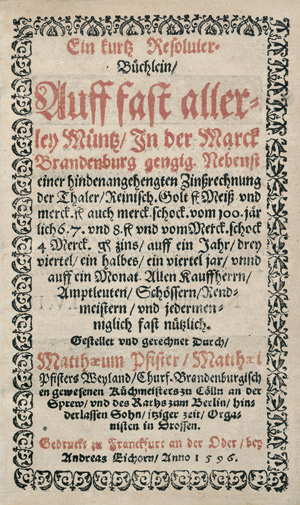 Ein kurtz Resoluier-
Büchlein/
Auff fast aller-
ley Müntz/ In der Marck
Brandenburg gengig. Nebenst
einer hindenangehengten Zinßrechnung
der Thaler/ Reinisch. Golt fl Meiß vnd
merck. auch merck. schock. vom 100. jär
lich 6. 7. vnd 8. fl vnd vom Merck. schock
4 Merck. gl zins/ auff ein Jahr/ drey
viertel/ ein halbes/ ein viertel jar/ vnnd
auff ein Monat. Allen Kauffherrn/
Amptleuten/ Schössern/ Rend-
meistern/ vnd jedermen-
niglich fast nützlich.
Gestellet vnd gerechnet Durch/
Matthæum Pfister/ Matthæi
Pfisters Weyland/ Churf. Brandenburgisch
en gewesenen Küchmeisters zu Cölln an der
Sprew/ vnd des Raths zum Berlin/ hin-
derlassen Sohn/ itziger zeit/ Orga
nisten in Drossen.
Gedruckt zu Franckfurt an der Oder/ bey
Andreas Eichorn/ Anno 1596.